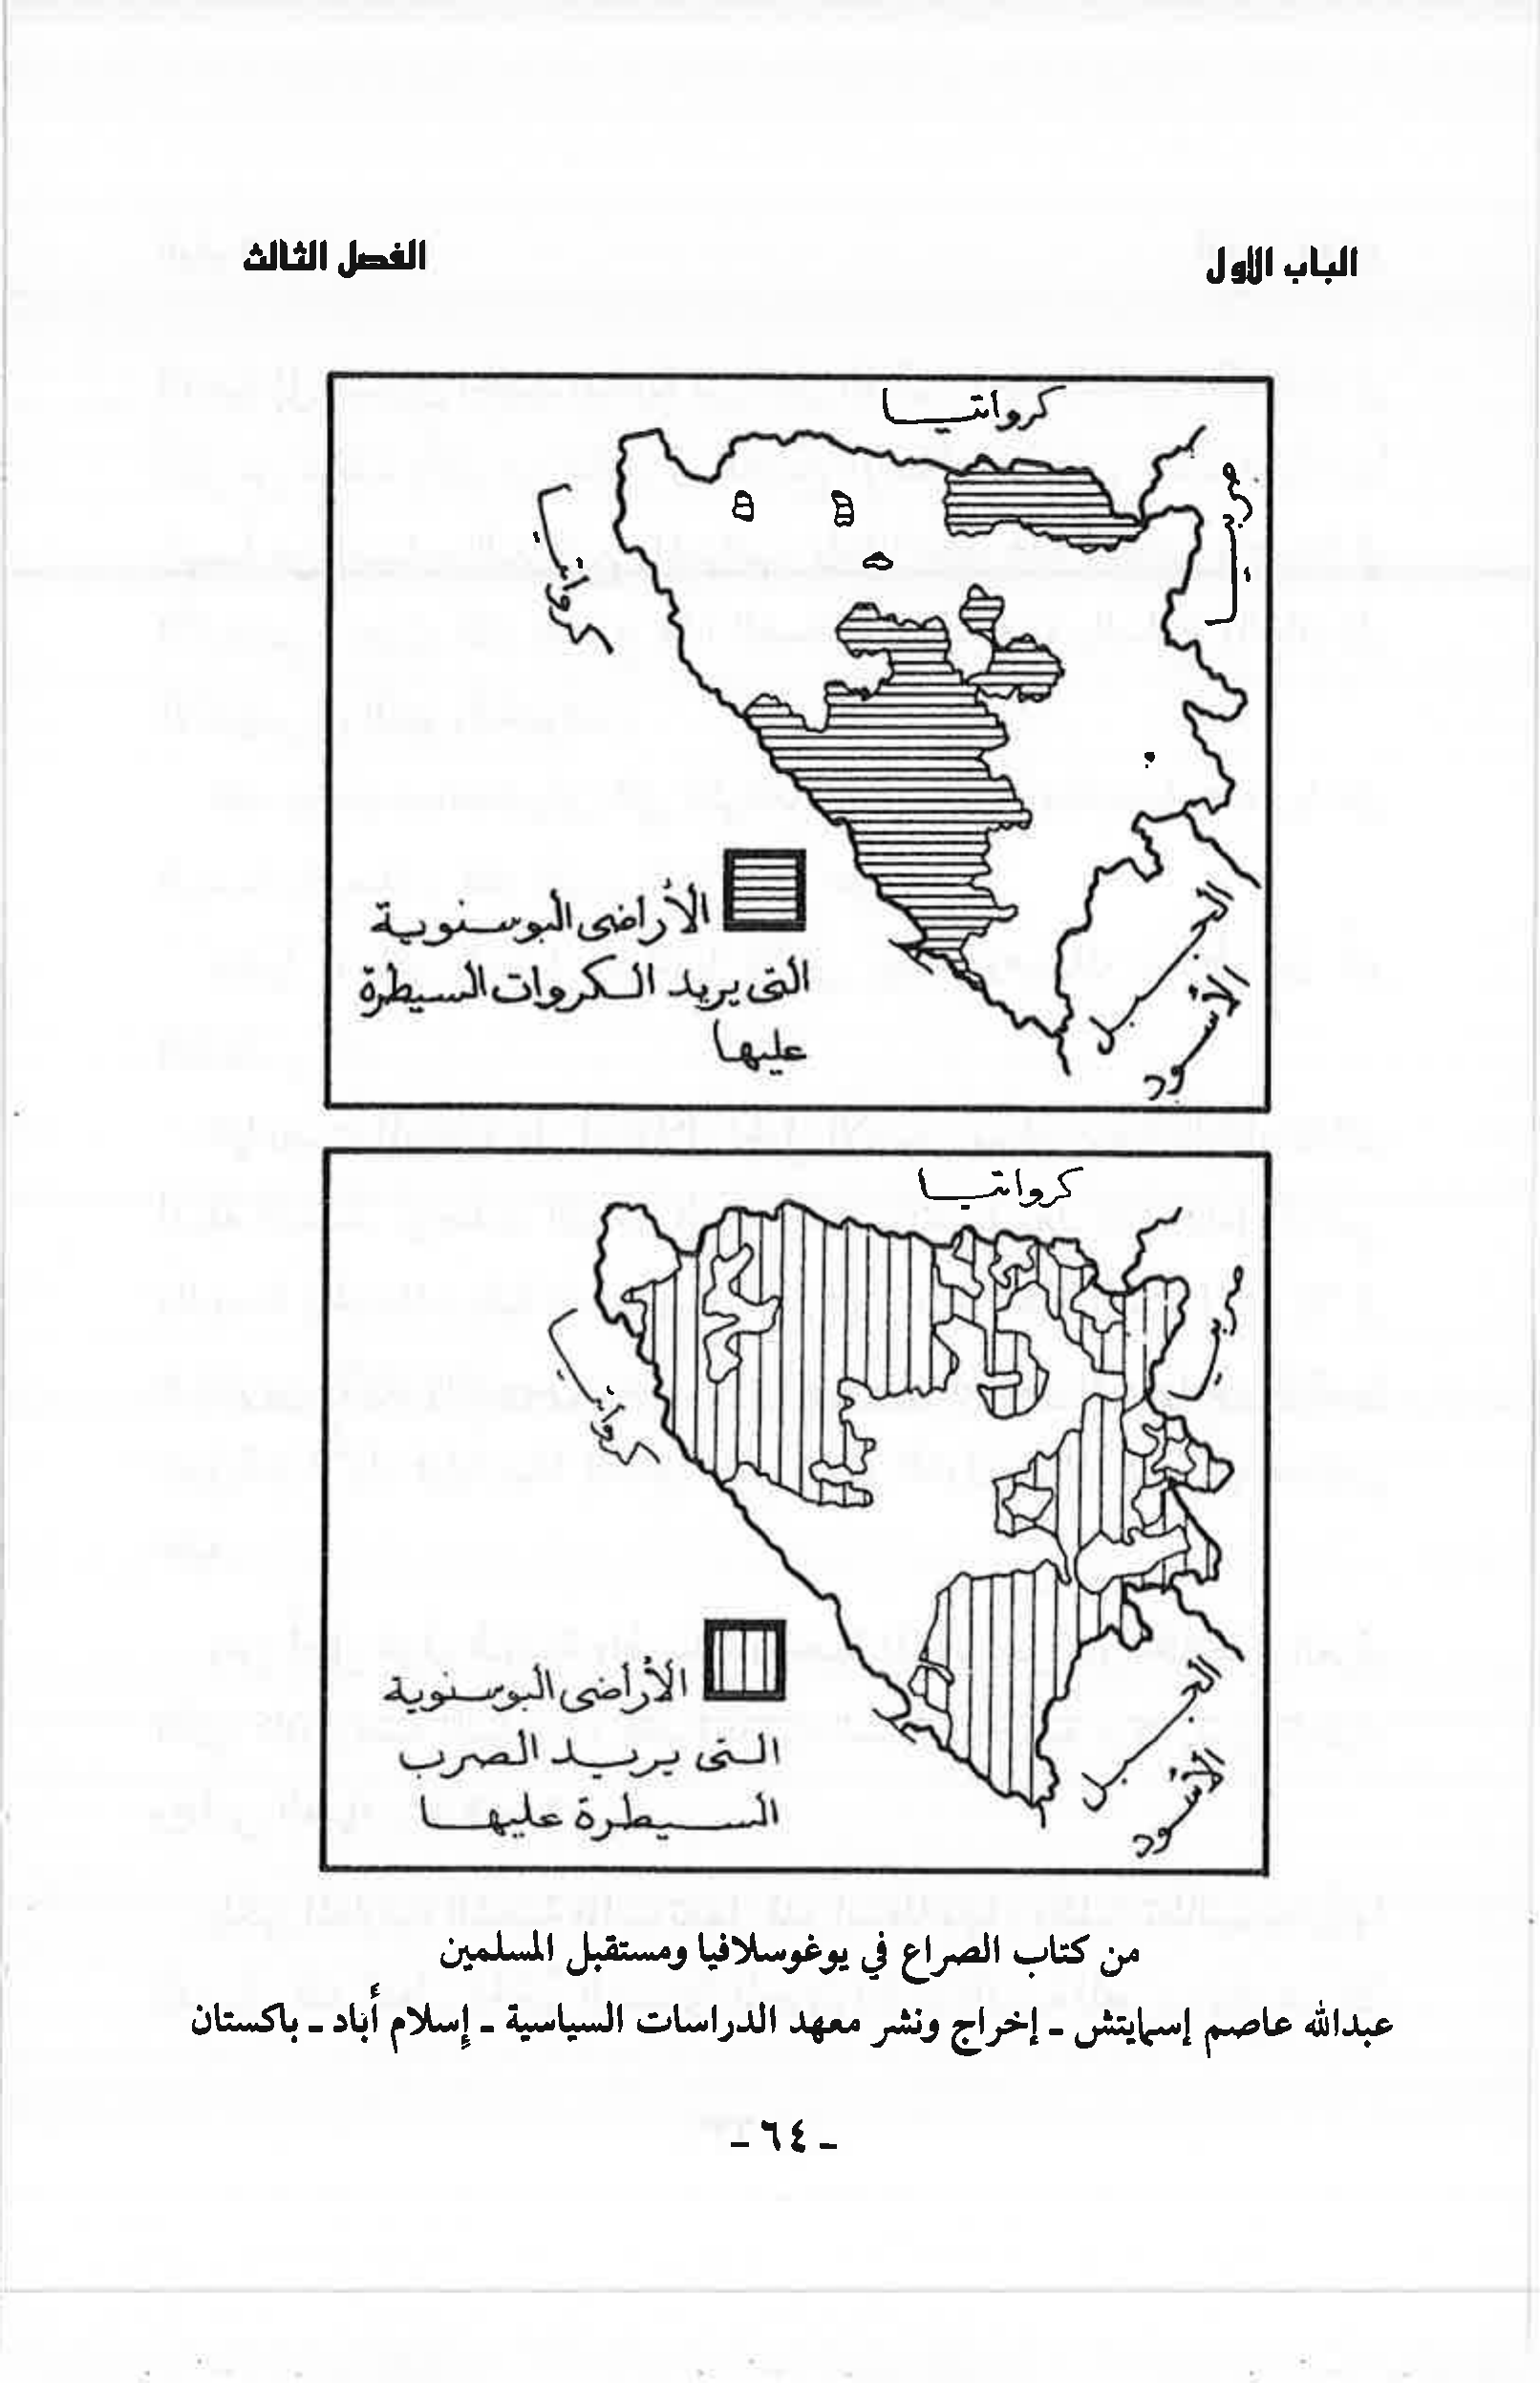 الباب الأول
الفصل الثالث
كرواتيا
صربيا
كرواتيا
الجبل
الأسود
الأراضى البوسنوية
التى يريد الكروات السيطرة
عليها
كرواتيا
صربيا
كرواتيا
الجبل
الأسود
الأراضى البوسنوية
التى يريد الصرب
السيطرة عليها
من كتاب الصراع في يوغوسلافيا ومستقبل المسلمين
عبدالله عاصم إسمايتش ـ إخراج ونشر معهد الدراسات السياسية ـ إسلام أباد ـ باكستان
ـ ٦٤ ـ